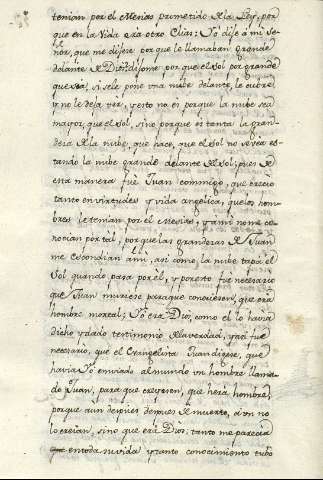 tenian por el Mesias prometido en la Ley, por
que en la Vida era otro Elias: Yo dije a mi Se-
ñor, que me dijese por que le llamaban grande
delante de Dios: dijome, por que el sol por grande
que sea, si se le pone vna nube delante, le cubre,
y no le deja ver, y esto no es porque la nube sea
mayor, que el sol, sino porque es tanta la gran-
deza de la nube, que hace, que el sol no se vea es-
tando la nube grande delante del sol; pues de
esta manera fuè Juan commigo, que creciò
tanto en virtudes y vida angelica, que los hom-
bres le tenian por el Mesias, y a mi no me co-
nocian por tal, porque las grandezas de Juan
me escondian à mi, asi como la nube tapa el
sol quando pasa por èl, y por esto fuè necesario
que Juan muriese para que conociesen, que era
hombre mortal; Yo era Dios, como el lo havia
dicho y dado testimonio de la verdad, y asi fuè
necesario, que el Evangelista Juan dijese, que
havia Yo enviado al mundo vn hombre llama-
do Juan, para que creyesen, que hera hombre,
porque aun despues de muerto, aun no
lo creian, sino que era Dios: tanto me parecia
en toda su vida y tanto conocimiento tubo